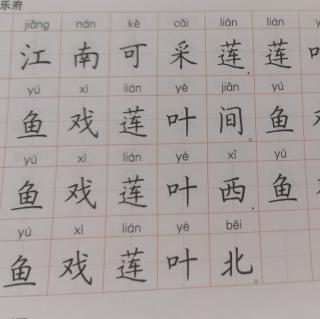 乐府
jiāng nán kě cǎi lián lián y
江南可采莲，莲叶
yú xì lián yè jiān yú
鱼戏莲叶间。鱼
yú xì lián yè xī yú
鱼戏莲叶西，鱼
yú xì lián yè běi
鱼戏莲叶北。